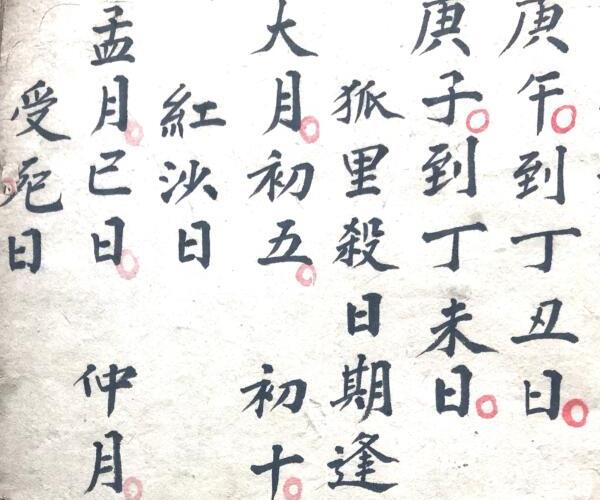 庚午到丁丑日
庚子到丁未日
狐里殺日期逢
大月初五 初十
紅沙日
孟月巳日 仲月
受死日